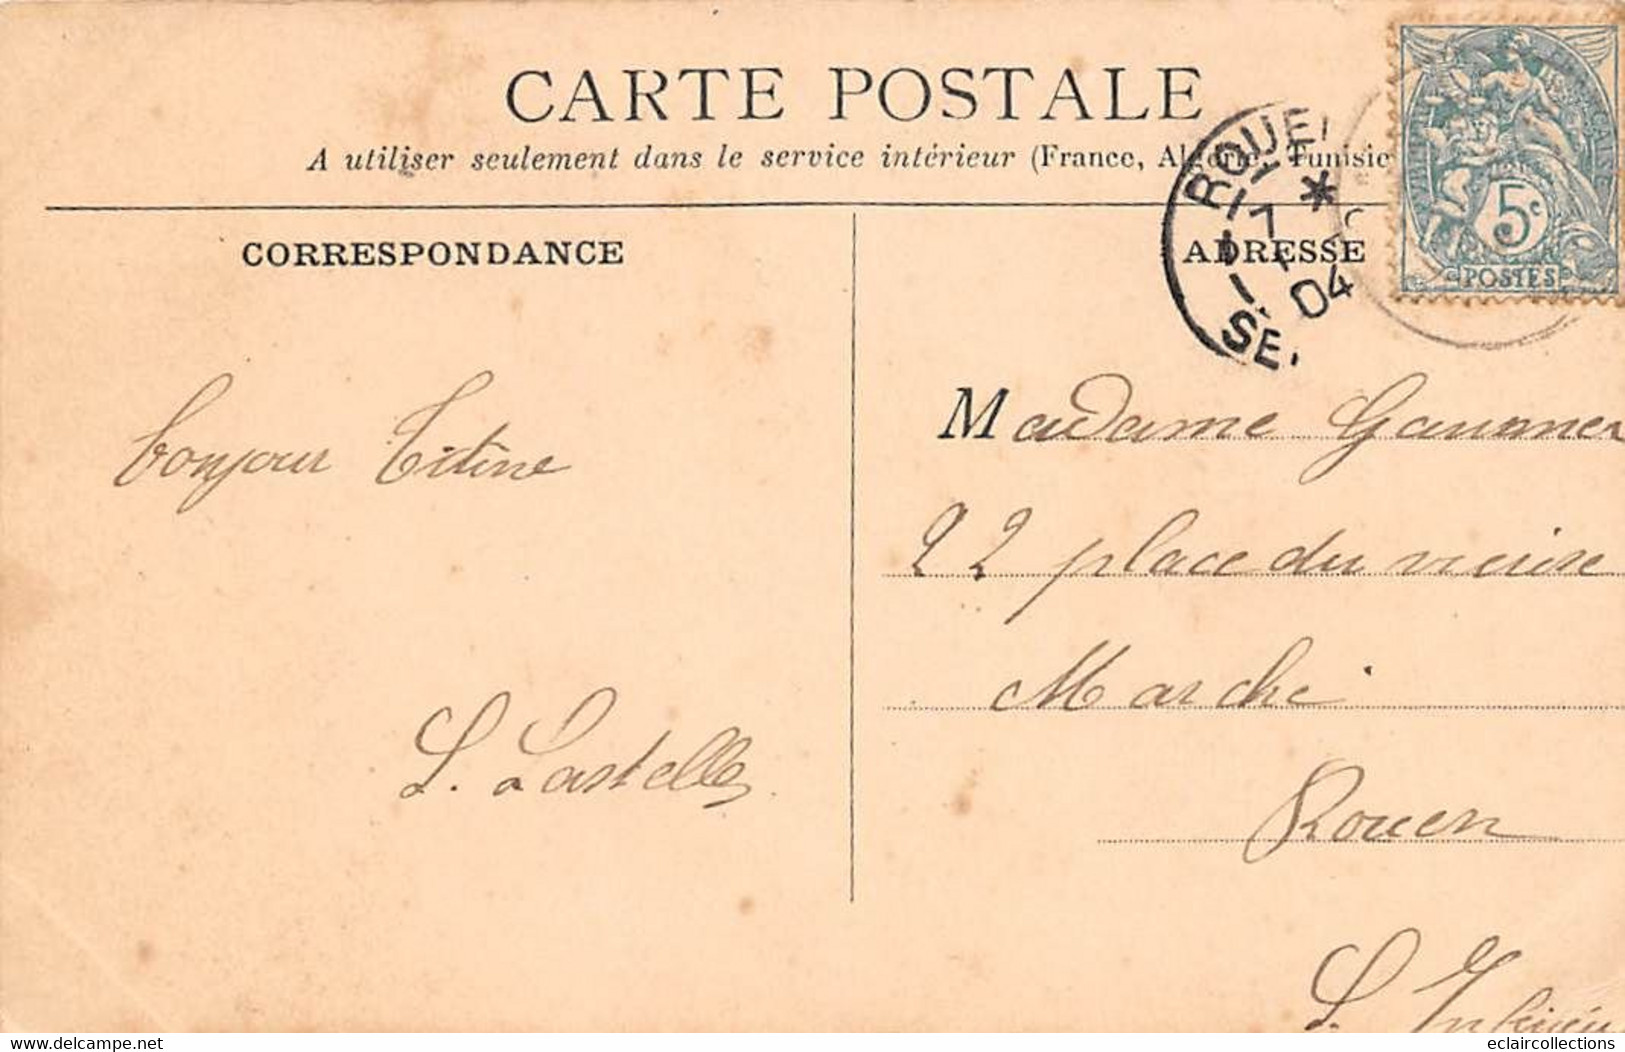 CARTE POSTALE
A utiliser seulement dans le service intérieur (France, Algérie, Tunisie
CORRESPONDANCE
ADRESSE
ROUE
7
04
SE.
5c
POSTES
bonjour Titine
L. Lastelle
Madame Gaumner
22 place du vieux
Marché
Rouen
S. Inférieu
delcampe.net
eclaircollections